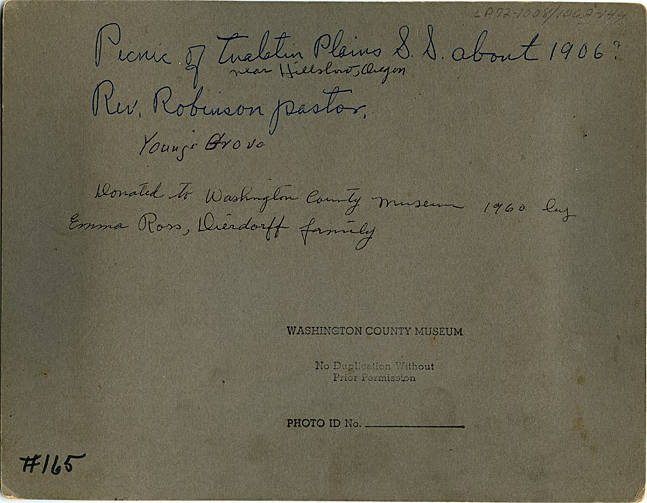 Picnic of Tualatin Plains S. S. about 1906?
near Hillsboro, Oregon
Rev. Robinson pastor.
Young's Grove
Donated to Washington County Museum 1960 by
Emma Ross, Dierdorff family
WASHINGTON COUNTY MUSEUM
No Duplication Without
Prior Permission
PHOTO ID No.
#165